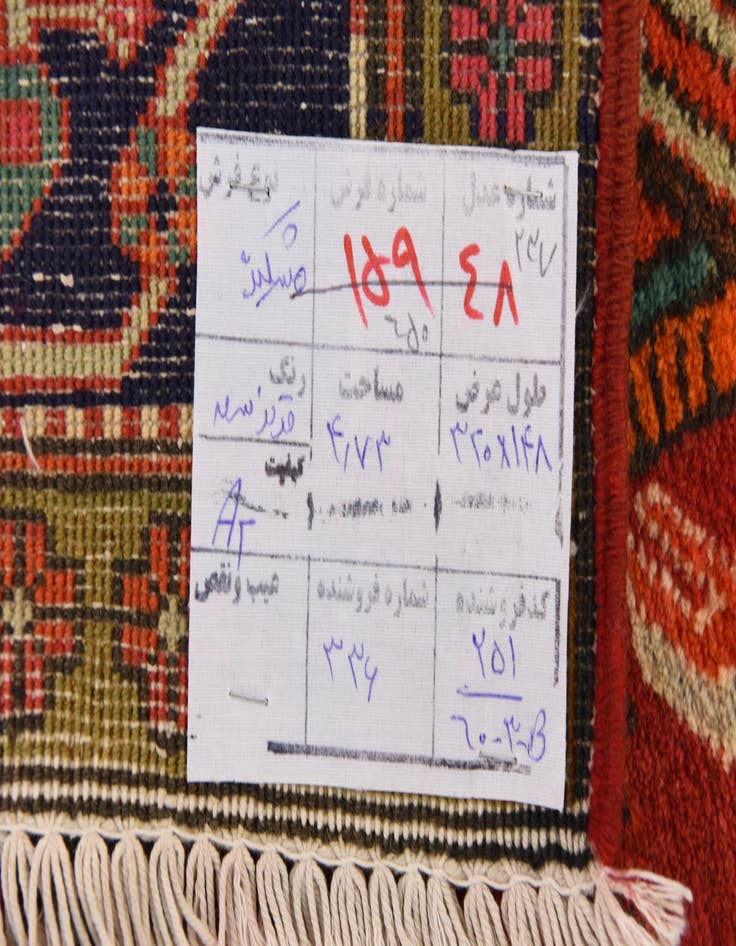 شماره عدل شماره فرش نوع فرش
۲۳۷
۴۸ ۱۵۹
۲۵۰
طول عرض مساحت رنگ
۳۲۰x۱۴۸ ۴/۷۳
کیفیت
A۲
کد فروشنده شماره فروشنده عیب و نقص
۲۵۱ ۳۳۶